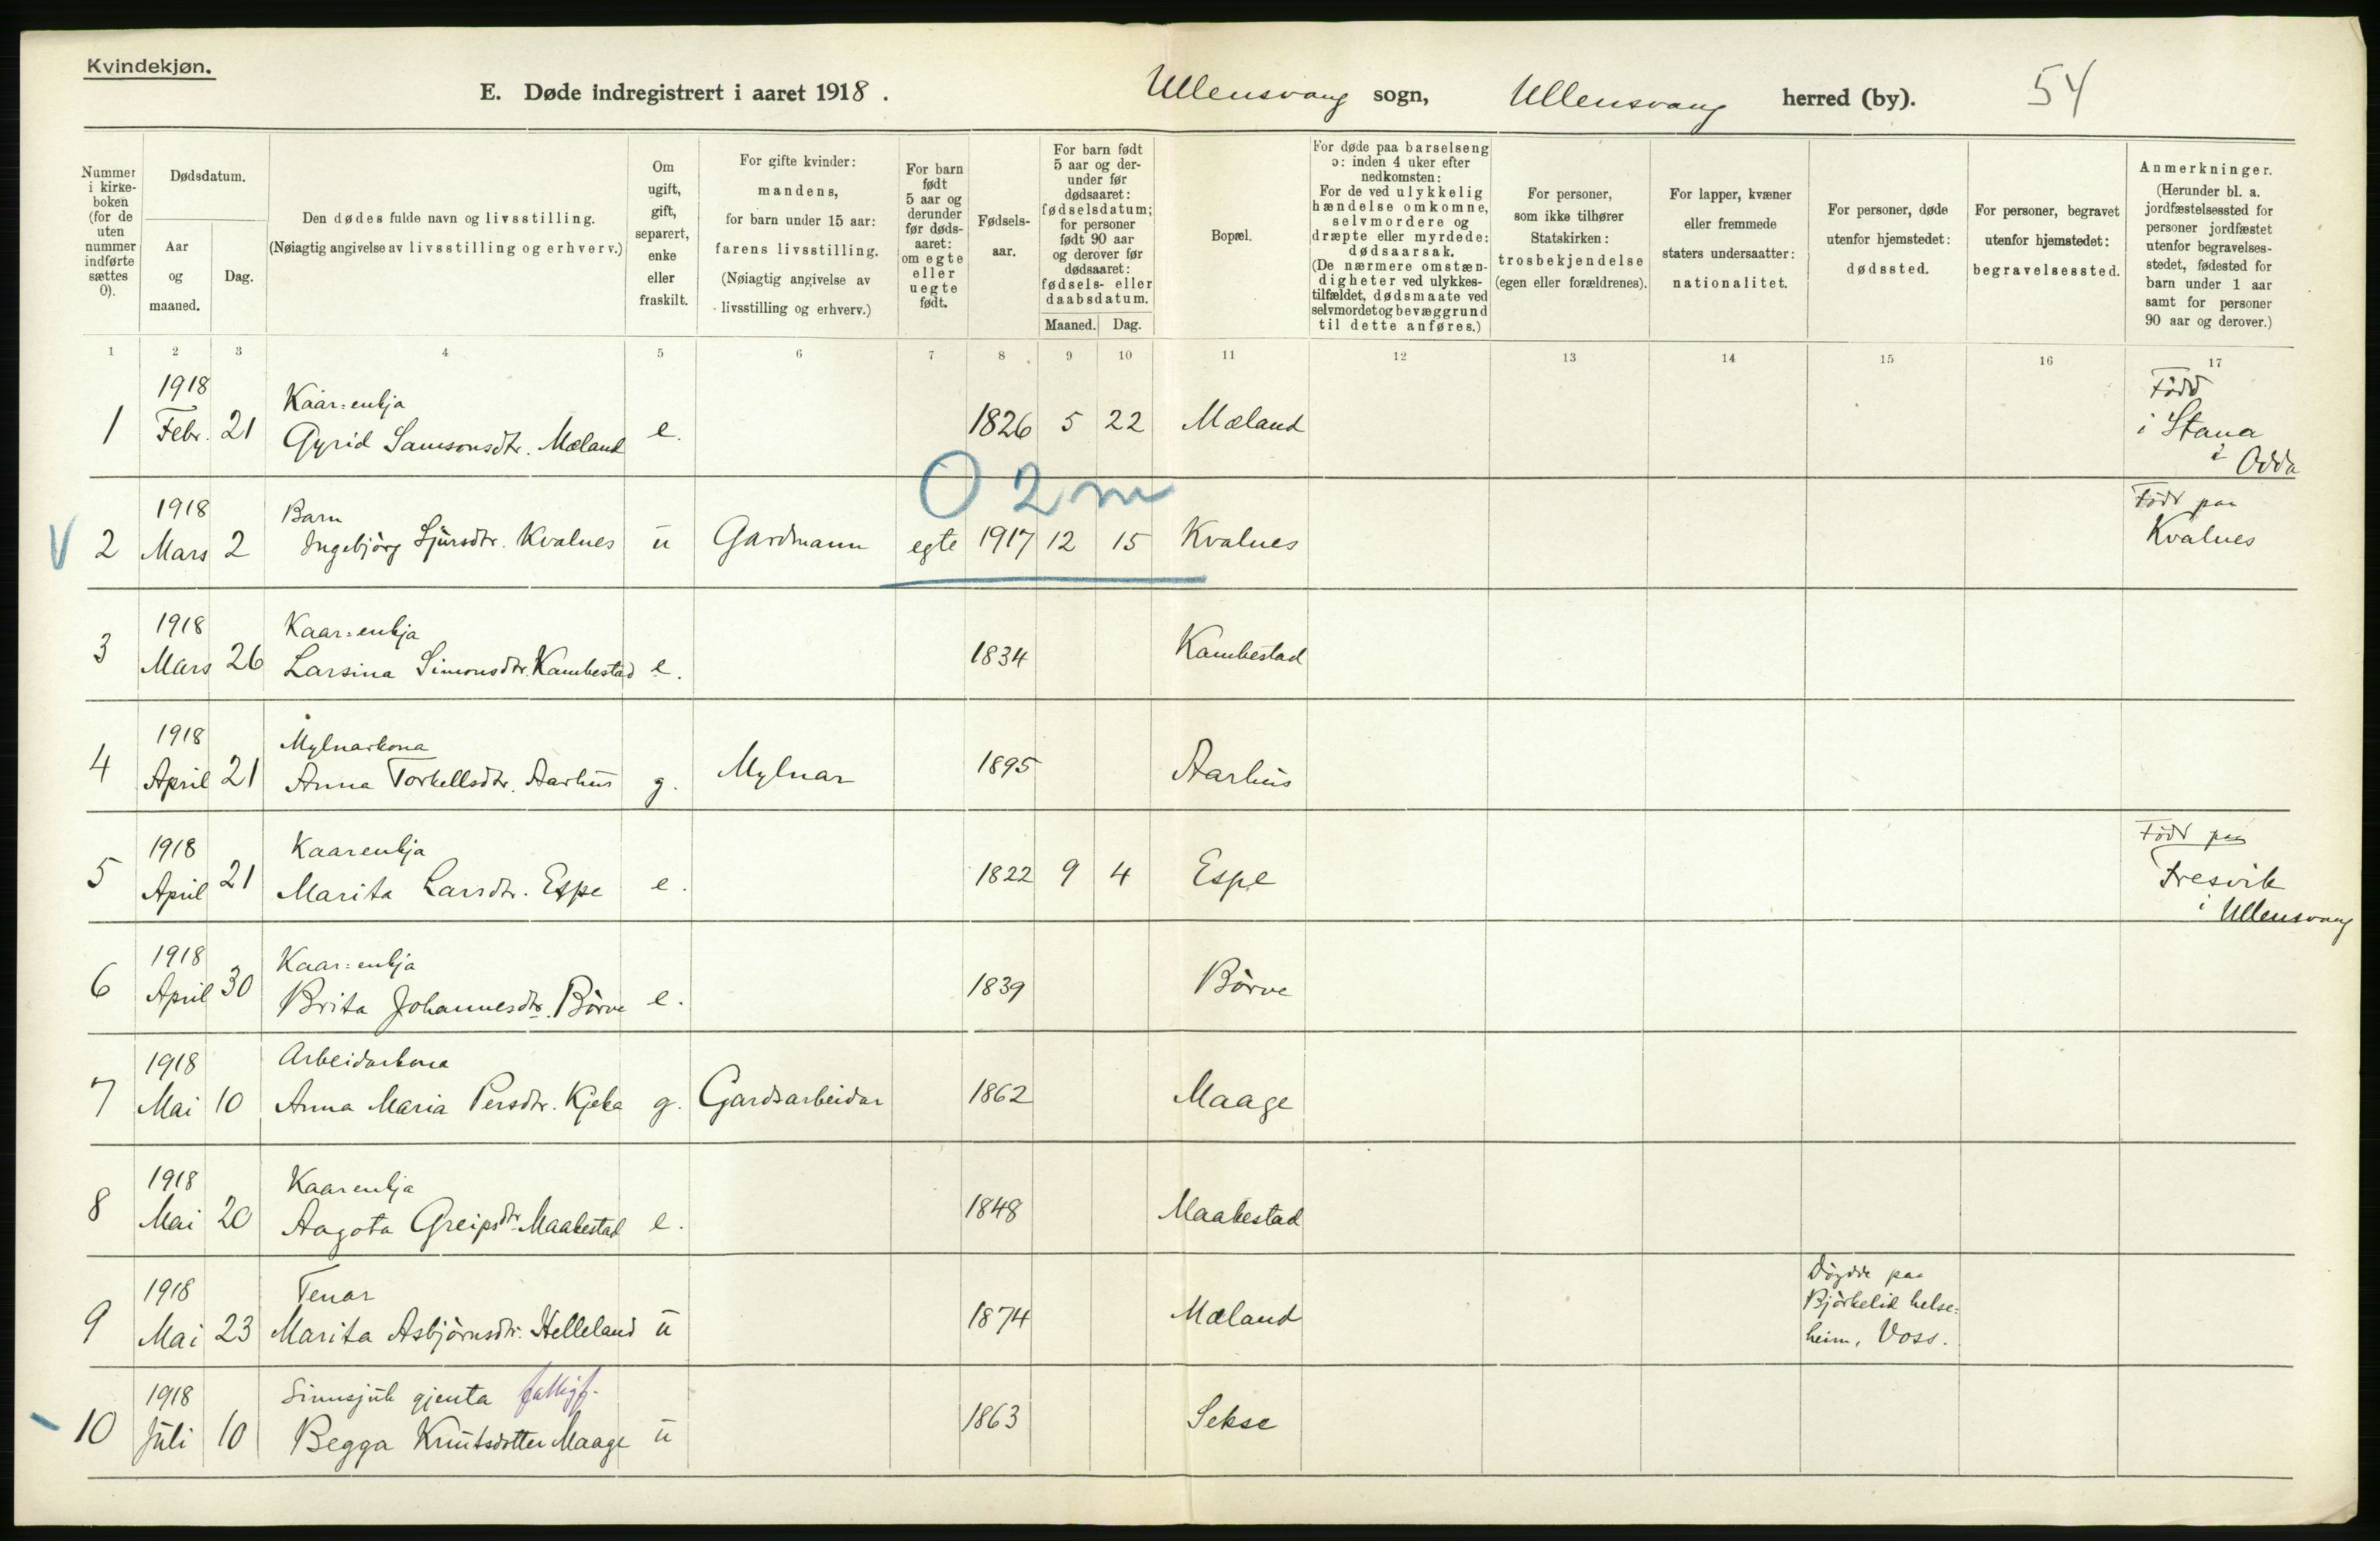 Kvindekjøn.
E. Døde indregistrert i aaret 1918. Ullensvang sogn, Ullensvang herred (by). 54
Nummer i kirke- boken (for de uten nummer indførte sættes 0).
Dødsdatum.
Aar og maaned.
Dag.
Den dødes fulde navn og livsstilling.
(Nøiagtig angivelse av livsstilling og erhverv.)
Om ugift, gift, separert, enke eller fraskilt.
For gifte kvinder: mandens, for barn under 15 aar: farens livsstilling. (Nøiagtig angivelse av livsstilling og erhverv.)
For barn født 5 aar og derunder før døds- aaret: om egte eller uegte født.
Fødsels- aar.
For barn født 5 aar og der- under før dødsaaret: fødselsdatum; for personer født 90 aar og derover før dødsaaret: fødsels- eller daabsdatum.
Maaned. Dag.
Bopæl.
For døde paa barselseng ɔ: inden 4 uker efter nedkomsten: For de ved ulykkelig hændelse omkomne, selvmordere og dræpte eller myrdede: dødsaarsak. (De nærmere omstæn- digheter ved ulykkes- tilfældet, dødsmaate ved selvmordet og bevæggrund til dette anføres.)
For personer, som ikke tilhører Statskirken: trosbekjendelse (egen eller forældrenes).
For lapper, kvæner eller fremmede staters undersaatter: nationalitet.
For personer, døde utenfor hjemstedet: dødssted.
For personer, begravet utenfor hjemstedet: begravelsessted.
Anmerkninger. (Herunder bl. a. jordfæstelsessted for personer jordfæstet utenfor begravelses- stedet, fødested for barn under 1 aar samt for personer 90 aar og derover.)
1 2 3 4 5 6 7 8 9 10 11 12 13 14 15 16 17
1918 Kaar=enkja Född
1 Febr. 21 Gyrid Samsonsdtr. Mæland e. 1826 5 22 Mæland i Stana
i Odda
O 2 m
1918 Barn Född paa
V 2 Mars 2 Ingebjörg Sjursdtr. Kvalnes u Gardmann egte 1917 12 15 Kvalnes Kvalnes
1918 Kaar=enkja
3 Mars 26 Larsina Simonsdtr. Kambestad e. 1834 Kambestad
1918 Mylnarkona
4 April 21 Anna Torkellsdtr. Aarhus g. Mylnar 1895 Aarhus
1918 Kaarenkja Född paa
5 April 21 Marita Larsdtr. Espe e. 1822 9 4 Espe Fresvik
i Ullensvang
1918 Kaar=enkja
6 April 30 Brita Johannesdtr. Börve e. 1839 Börve
1918 Arbeidarkona
7 Mai 10 Anna Maria Persdtr. Kjeka g. Gardsarbeidar 1862 Maage
1918 Kaarenkja
8 Mai 20 Aagota Greipsdtr. Maakestad e. 1848 Maakestad
1918 Tenar Döydde paa
9 Mai 23 Marita Asbjörnsdtr. Helleland u 1874 Mæland Bjørkelid helse=
heim, Voss.
1918 Sinnsjuk gjenta fattigf.
10 Juli 10 Begga Knutsdotter Maage u 1863 Sekse